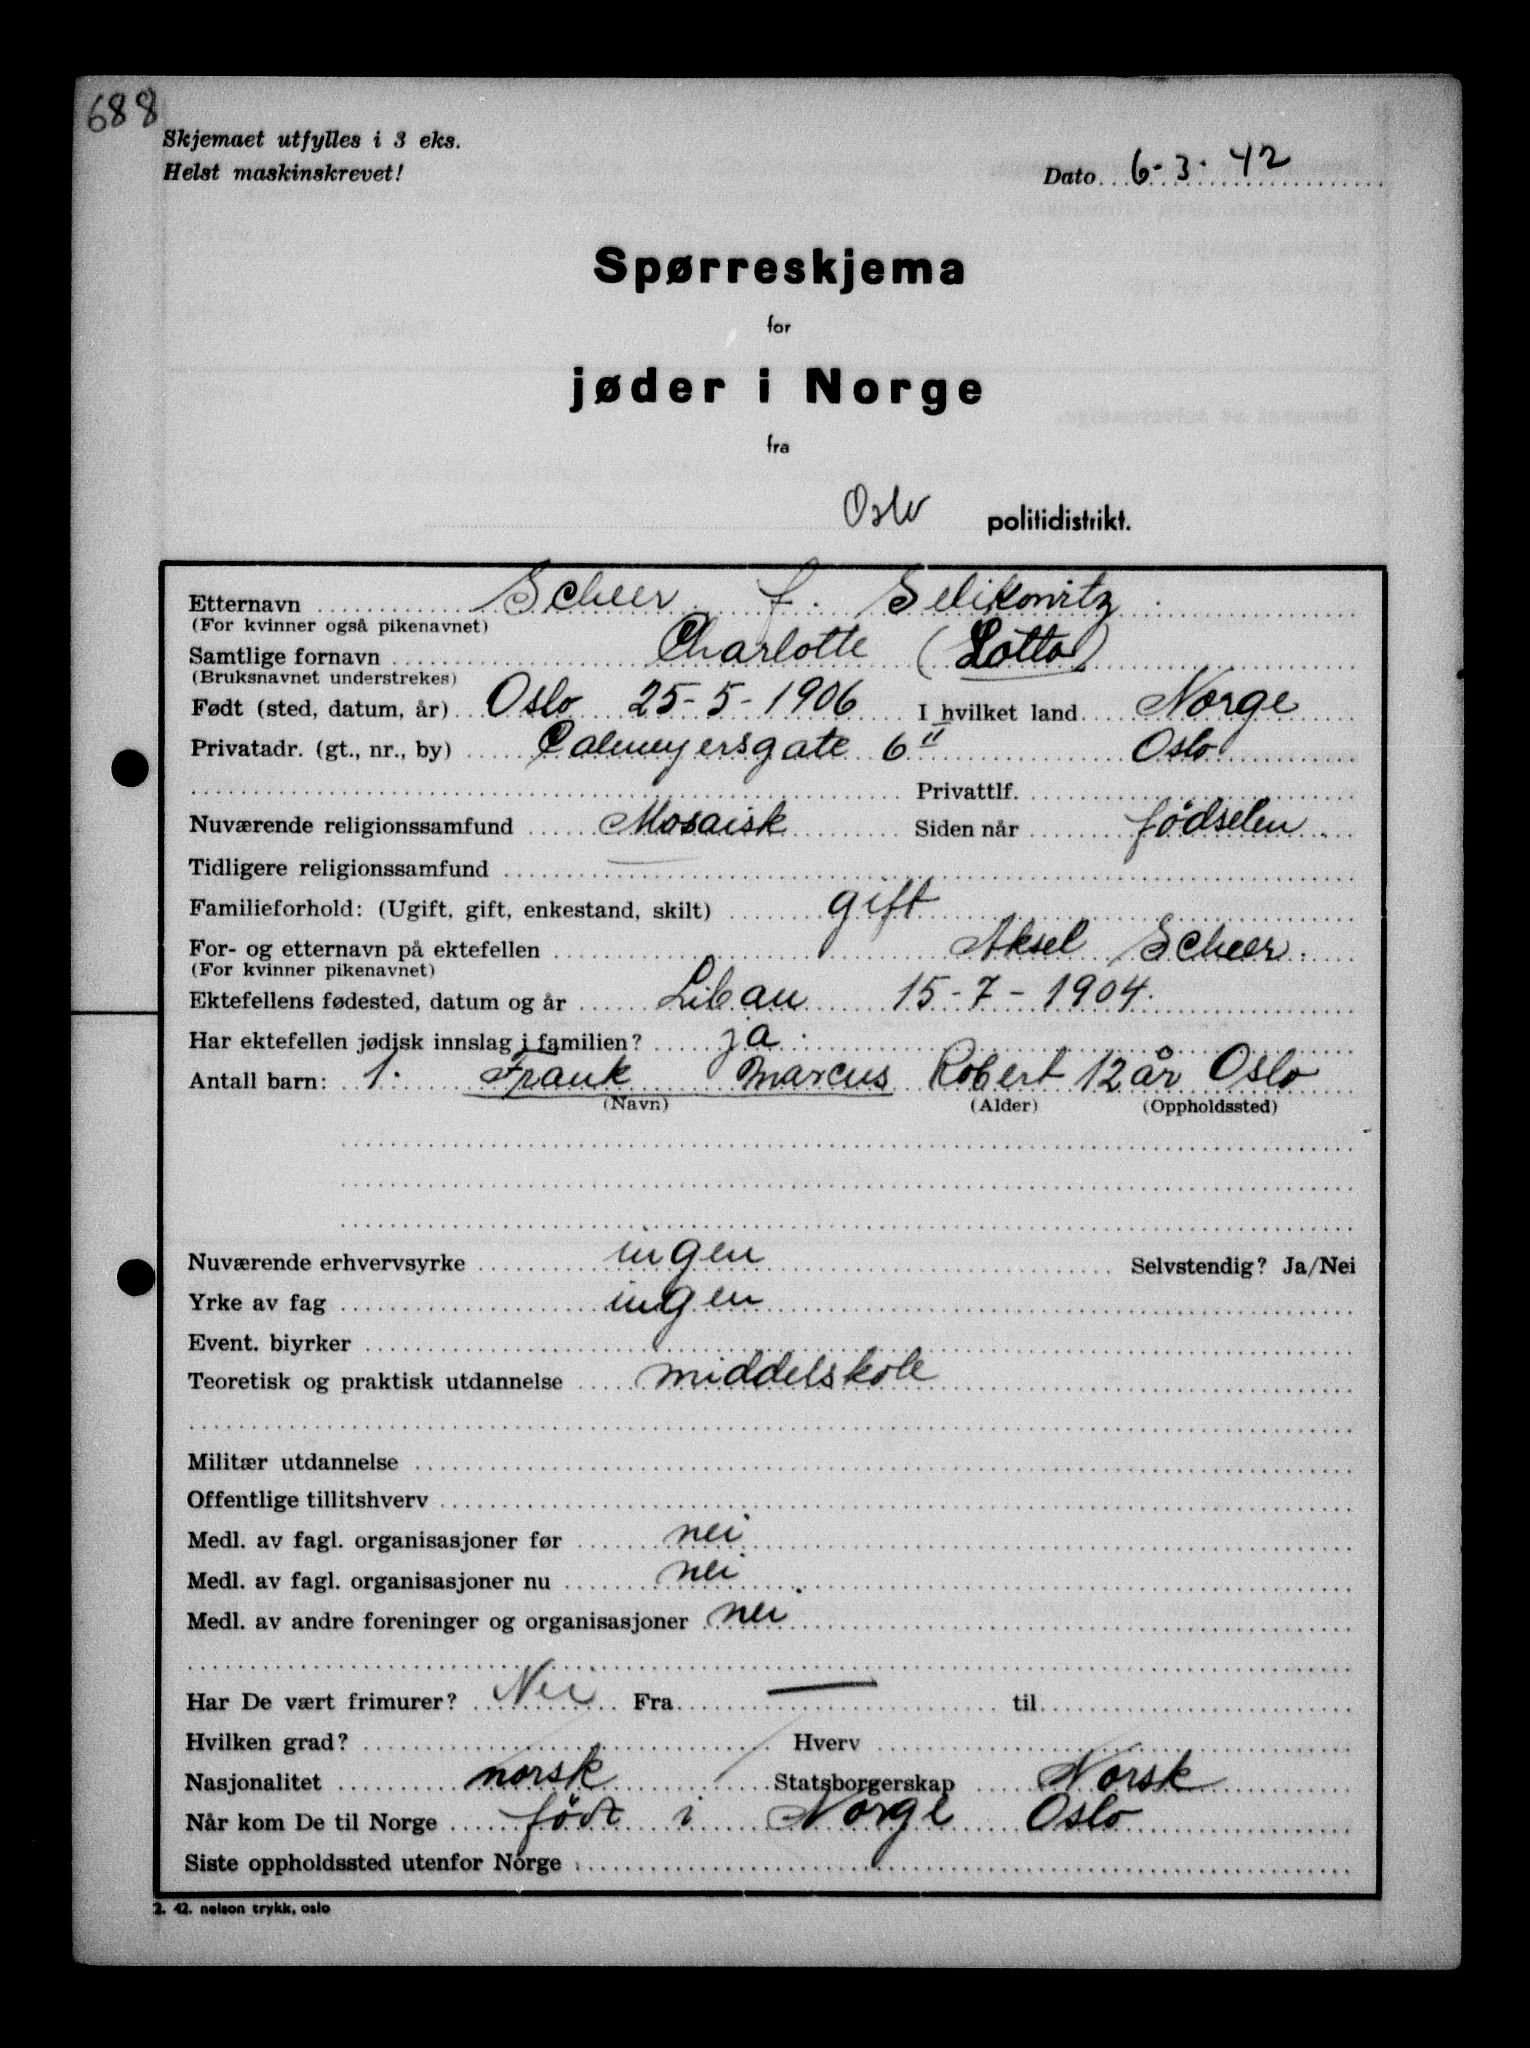 688
Skjemaet utfylles i 3 eks.
Helst maskinskrevet!
Dato 6-3-42
Spørreskjema
for
jøder i Norge
fra
Oslo politidistrikt.
Etternavn Scheer f. Selikowitz
(For kvinner også pikenavnet)
Samtlige fornavn Charlotte (Lotta)
(Bruksnavnet understrekes)
Født (sted, datum, år) Oslo 25-5-1906 I hvilket land Norge
Privatadr. (gt., nr., by) Calmeyersgate 6 II Oslo
Privattlf.
Nuværende religionssamfund Mosaisk Siden når fødselen
Tidligere religionssamfund
Familieforhold: (Ugift, gift, enkestand, skilt) gift
For- og etternavn på ektefellen Aksel Scheer.
(For kvinner pikenavnet)
Ektefellens fødested, datum og år Libau 15-7-1904.
Har ektefellen jødisk innslag i familien? ja.
Antall barn: 1. Frank Marcus Robert 12 år Oslo
(Navn) (Alder) (Oppholdssted)
Nuværende erhvervsyrke ingen Selvstendig? Ja/Nei
Yrke av fag ingen
Event. biyrker
Teoretisk og praktisk utdannelse middelskole
Militær utdannelse
Offentlige tillitshverv
Medl. av fagl. organisasjoner før nei
Medl. av fagl. organisasjoner nu nei
Medl. av andre foreninger og organisasjoner nei
Har De vært frimurer? Nei Fra — til
Hvilken grad? Hverv
Nasjonalitet norsk Statsborgerskap Norsk
Når kom De til Norge født i Norge Oslo
Siste oppholdssted utenfor Norge
2. 42. nelson trykk, oslo